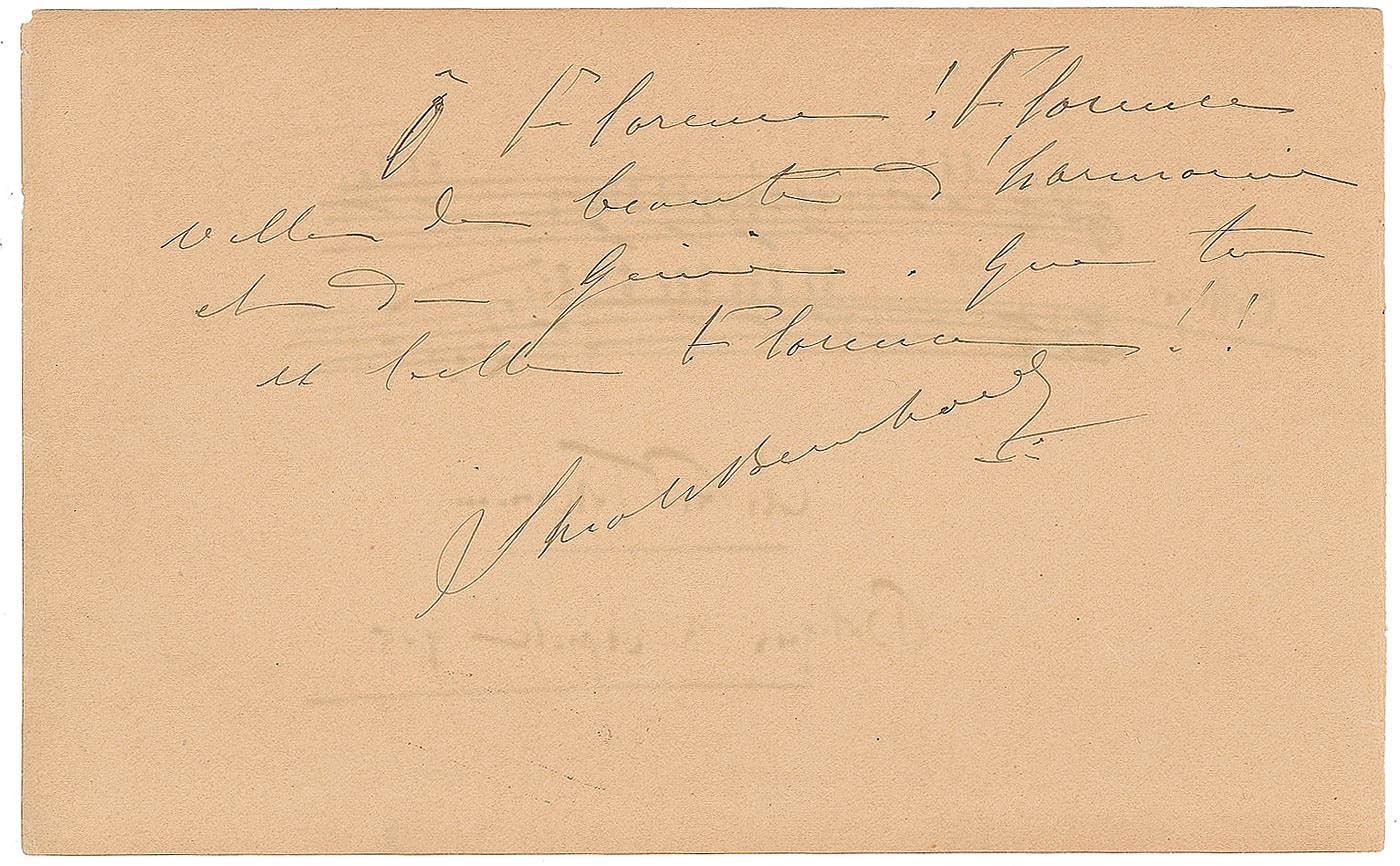 Ô Florence ! Florence
ville de beauté d'harmonie
et de génie . que tu
es belle Florence ! !
Sarah Bernhardt